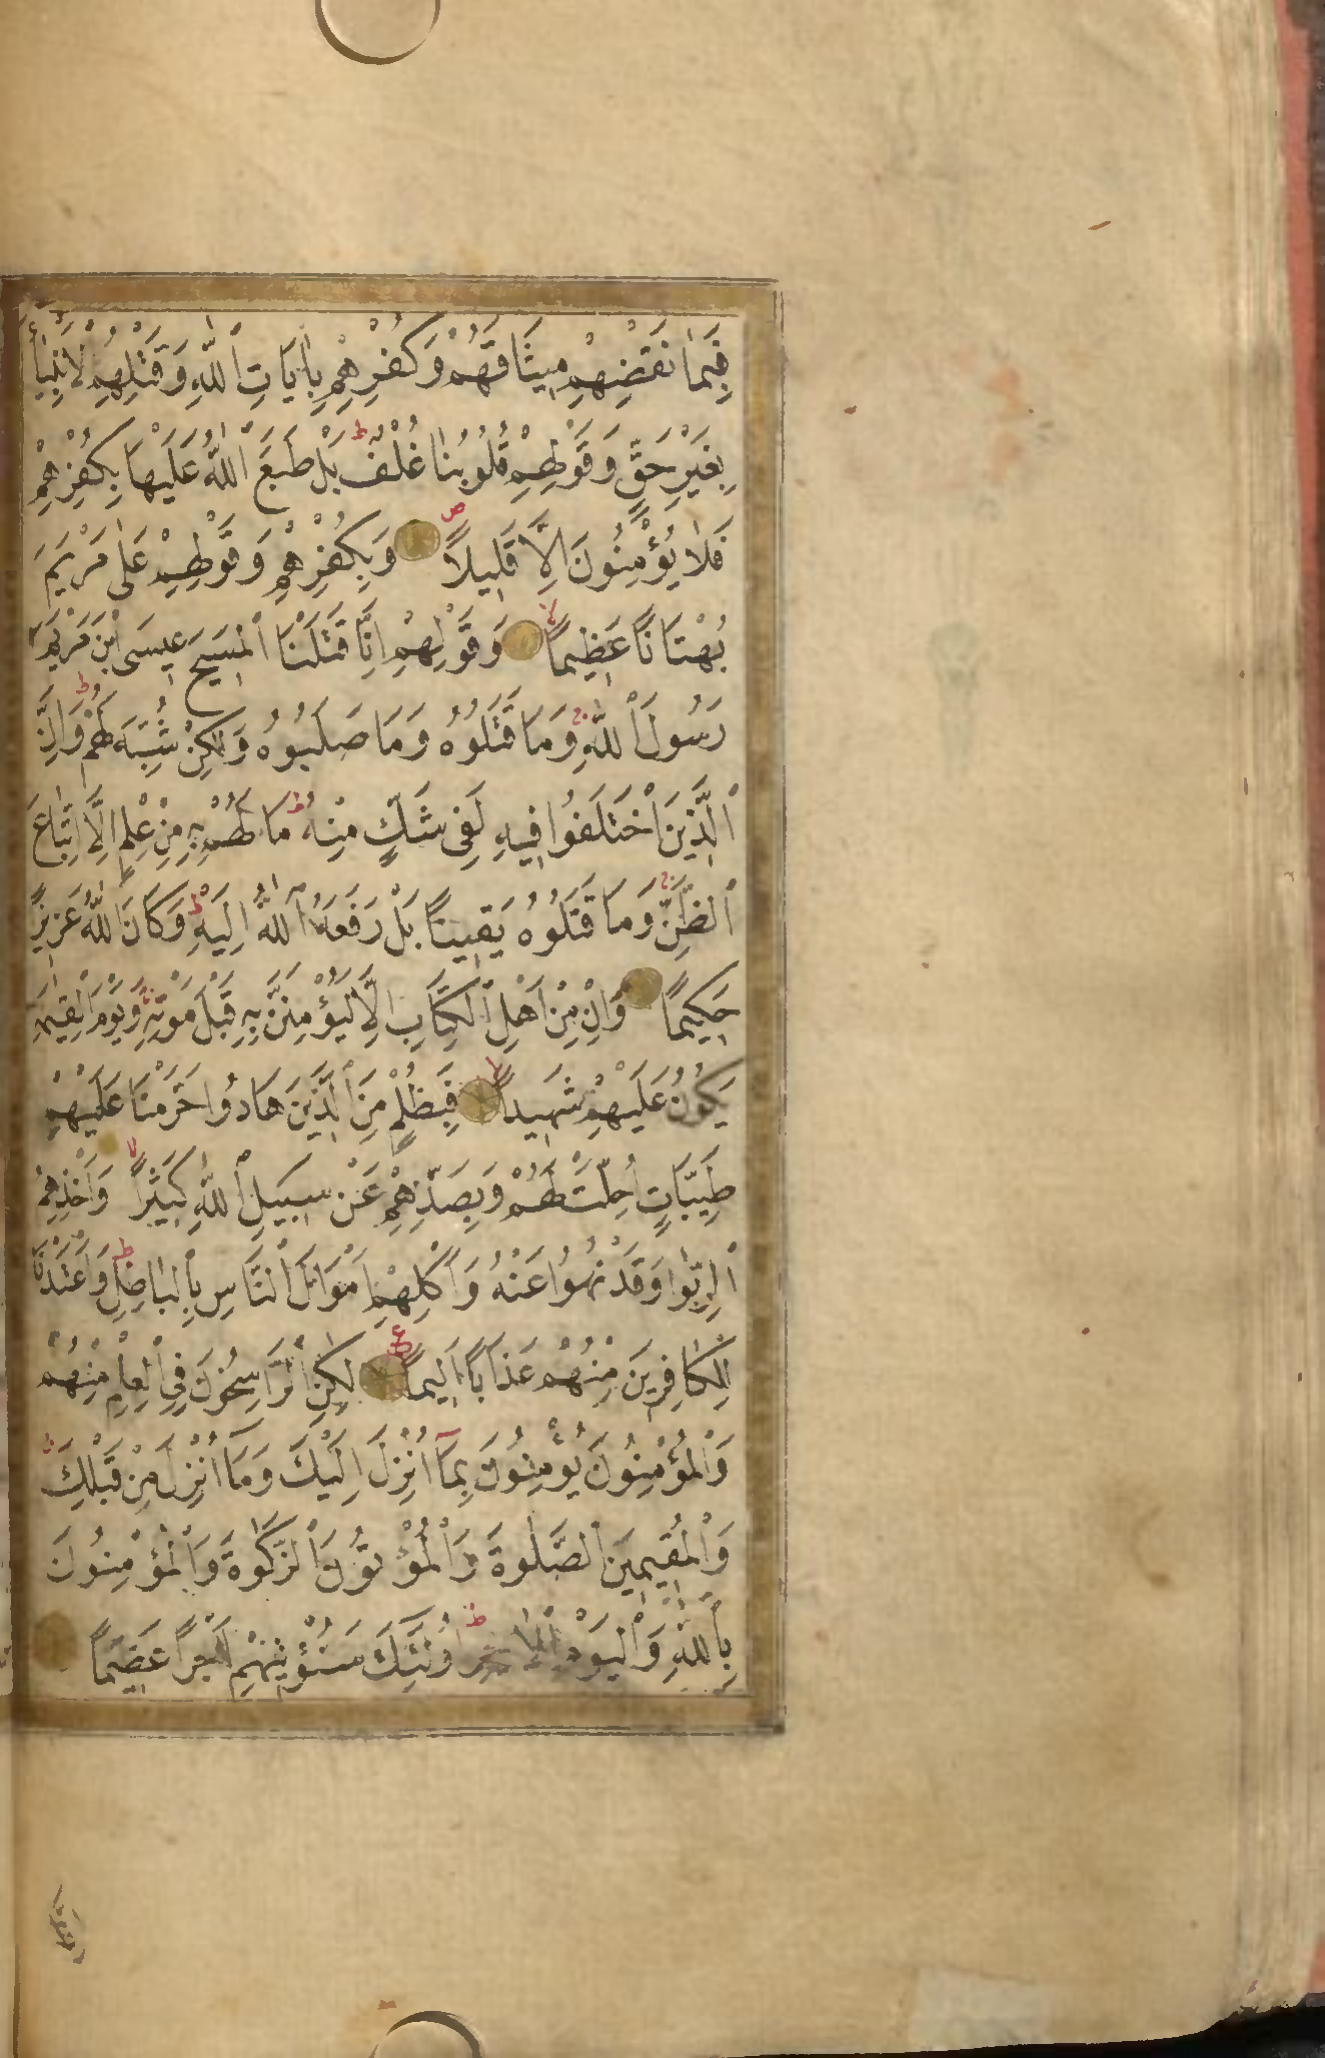 فَبِمَا نَقْضِهِمْ مِيثَاقَهُمْ وَكُفْرِهِمْ بِاٰيَاتِ ٱللّٰهِ وَقَتْلِهِمُ لْاَنْبِيَاۤءَ
بِغَيْرِ حَقٍّ وَقَوْلِهِمْ قُلُوبُنَا غُلْفٌ ط بَلْ طَبَعَ ٱللّٰهُ عَلَيْهَا بِكُفْرِهِمْ
فَلَا يُؤْمِنُونَ اِلَّا قَلِيلًا ص وَبِكُفْرِهِمْ وَقَوْلِهِمْ عَلٰى مَرْيَمَ
بُهْتَانًا عَظِيمًا لا وَقَوْلِهِمْ اِنَّا قَتَلْنَا ٱلْمَسِيحَ عِيسَى ٱبْنَ مَرْيَمَ
رَسُولَ ٱللّٰهِ ج وَمَا قَتَلُوهُ وَمَا صَلَبُوهُ وَلٰكِنْ شُبِّهَ لَهُمْ ط وَاِنَّ
ٱلَّذِينَ ٱخْتَلَفُوا فِيهِ لَفِى شَكٍّ مِنْهُ ط مَا لَهُمْ بِهِ مِنْ عِلْمٍ اِلَّا ٱتِّبَاعَ
ٱلظَّنِّ ج وَمَا قَتَلُوهُ يَقِينًا بَلْ رَفَعَهُ ٱللّٰهُ اِلَيْهِ ط وَكَانَ ٱللّٰهُ عَزِيزًا
حَكِيمًا وَاِنْ مِنْ اَهْلِ ٱلْكِتَابِ اِلَّا لَيُؤْمِنَنَّ بِهِ قَبْلَ مَوْتِهِ ج وَيَوْمَ ٱلْقِيٰمَةِ
يَكُونُ عَلَيْهِمْ شَهِيدًا ط فَبِظُلْمٍ مِنَ ٱلَّذِينَ هَادُوا حَرَّمْنَا عَلَيْهِمْ
طَيِّبَاتٍ اُحِلَّتْ لَهُمْ وَبِصَدِّهِمْ عَنْ سَبِيلِ ٱللّٰهِ كَثِيرًا لا وَاَخْذِهِمُ
ٱلرِّبٰوا وَقَدْ نُهُوا عَنْهُ وَاَكْلِهِمْ اَمْوَالَ ٱلنَّاسِ بِٱلْبَاطِلِ ط وَاَعْتَدْنَا
لِلْكَافِرِينَ مِنْهُمْ عَذَابًا اَلِيمًا ع لٰكِنِ ٱلرَّاسِخُونَ فِى ٱلْعِلْمِ مِنْهُمْ
وَٱلْمُؤْمِنُونَ يُؤْمِنُونَ بِمَاۤ اُنْزِلَ اِلَيْكَ وَمَا اُنْزِلَ مِنْ قَبْلِكَ ط
وَٱلْمُقِيمِينَ ٱلصَّلٰوةَ وَٱلْمُؤْتُونَ ٱلزَّكٰوةَ وَٱلْمُؤْمِنُونَ
بِٱللّٰهِ وَٱلْيَوْمِ ٱلْاٰخِرِ ط اُولٰئِكَ سَنُؤْتِيهِمْ اَجْرًا عَظِيمًا